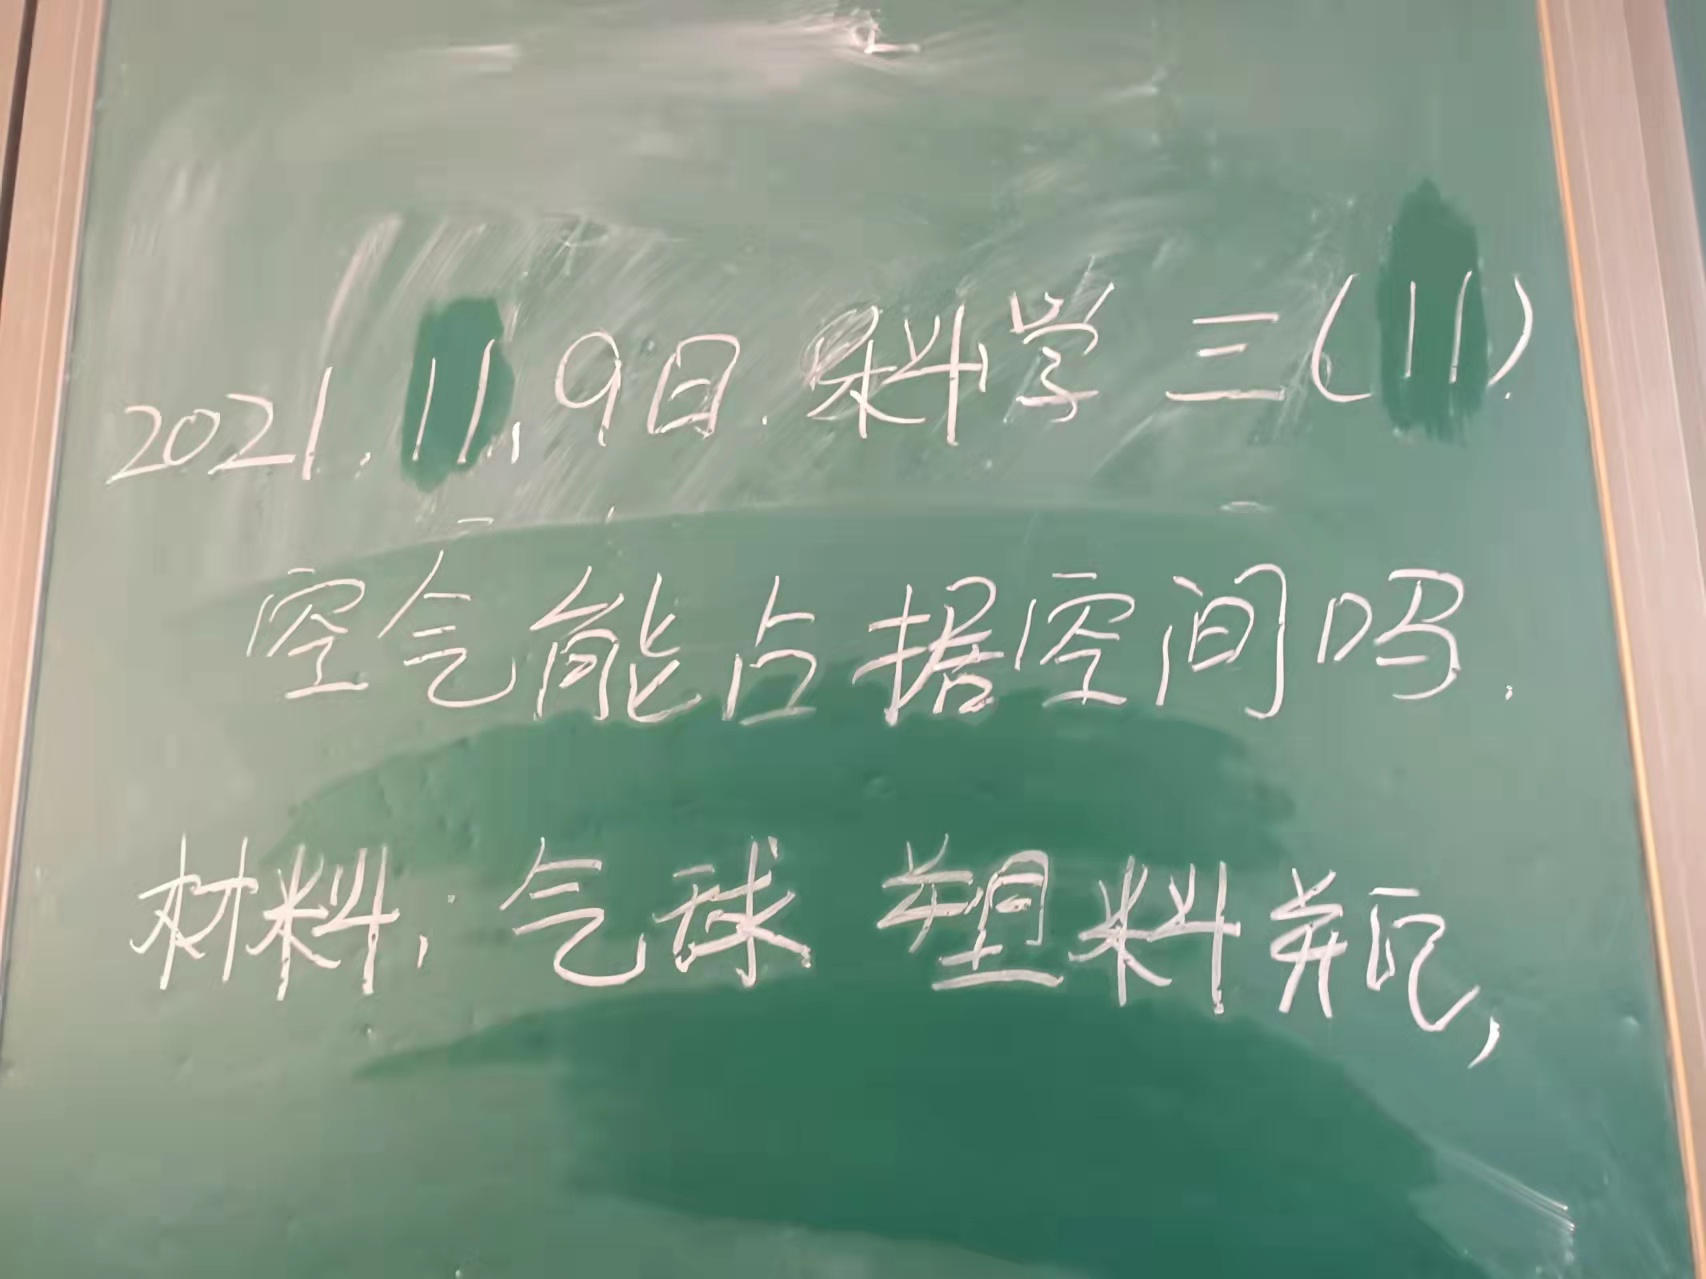 2021.11.9日.科学 三(11).
空气能占据空间吗.
材料:气球 塑料瓶,